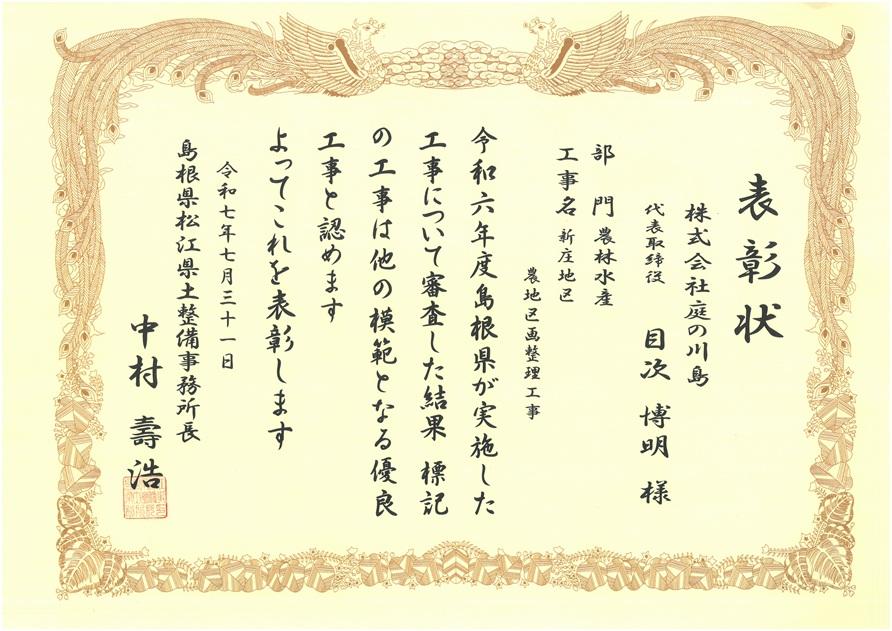 表彰状
株式会社庭の川島
代表取締役 目次 博明 様
部門 農林水産
工事名 新庄地区
農地区画整理工事
令和六年度島根県が実施した
工事について審査した結果 標記
の工事は他の模範となる優良
工事と認めます
よってこれを表彰します
令和七年七月三十一日
島根県松江県土整備事務所長
中村 壽浩